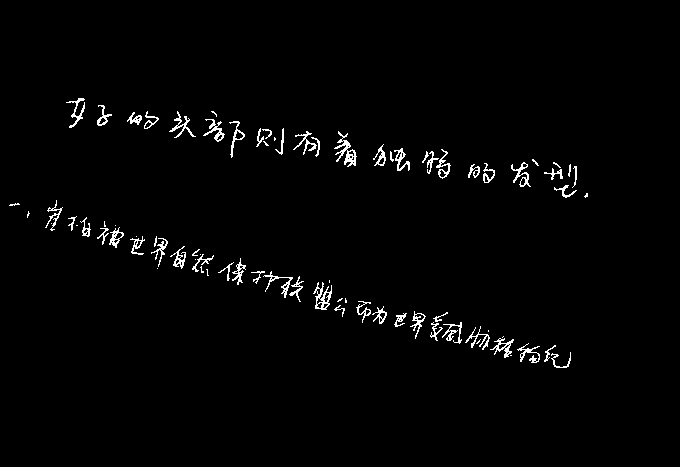 女子的头部则有着独特的发型.
一、崖柏被世界自然保护联盟公布为世界受威胁植物红